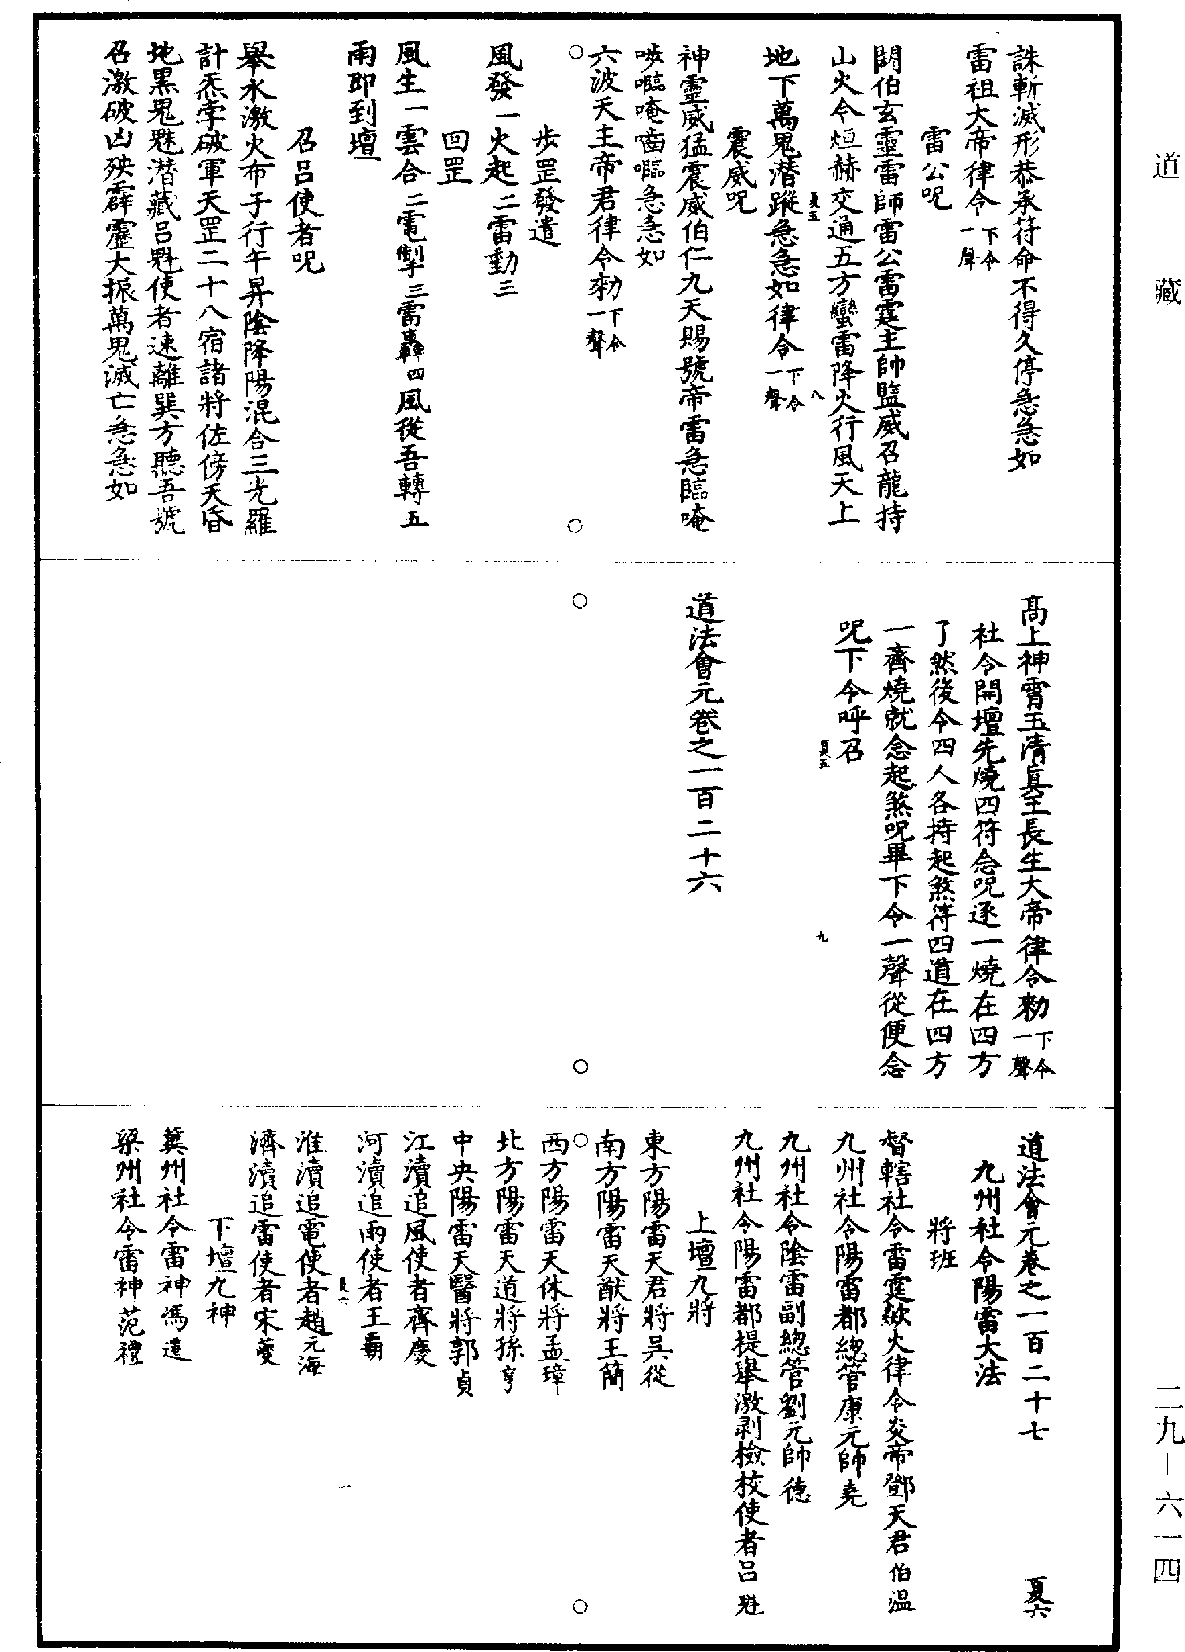 道藏
誅斬滅形恭承符命不得久停急急如
雷祖大帝律令下令一聲
雷公呪
閼伯玄靈雷師雷公雷霆主帥監威召龍持
山火令烜赫交通五方蠻雷降火行風天上
地下萬鬼潛蹤急急如律令下令一聲
震威呪
神靈威猛震威伯仁九天賜號帝雷急臨唵
唵嚙嘔急急如
六波天主帝君律令勑下令一聲
步罡發遣
風發一火起二雷動三
回罡
風生一雲合二電掣三雷轟四風從吾轉五
雨即到壇
召呂使者呪
舉水激火布子行午昇陰降陽混合三光羅
計炁孛破軍天罡二十八宿諸將佐傍天昏
地黑鬼魅潛藏呂魁使者速離巽方聽吾號
召激破凶殃霹靂大振萬鬼滅亡急急如
夏五
八
高上神霄玉清真王長生大帝律令勑下令一聲
社令開壇先燒四符念呪逐一燒在四方
了然後令四人各持起煞符四道在四方
一齊燒就念起煞呪畢下令一聲從便念
呪下令呼召
夏五
九
道法會元卷之一百二十六
道法會元卷之一百二十七
夏六
九州社令陽雷大法
將班
督轄社令雷霆歘火律令炎帝鄧天君伯溫
九州社令陽雷都總管康元帥堯
九州社令陰雷副總管劉元帥德
九州社令陽雷都提舉激剥檢校使者呂魁
上壇九將
東方陽雷天君將吳從
南方陽雷天猷將王簡
西方陽雷天休將孟璋
北方陽雷天道將孫亨
中央陽雷天醫將郭貞
江瀆追風使者齊慶
河瀆追雨使者王霸
淮瀆追電使者趙元海
濟瀆追雷使者宋夔
下壇九神
冀州社令雷神馮遷
梁州社令雷神范禮
夏六
一
二九－六一四